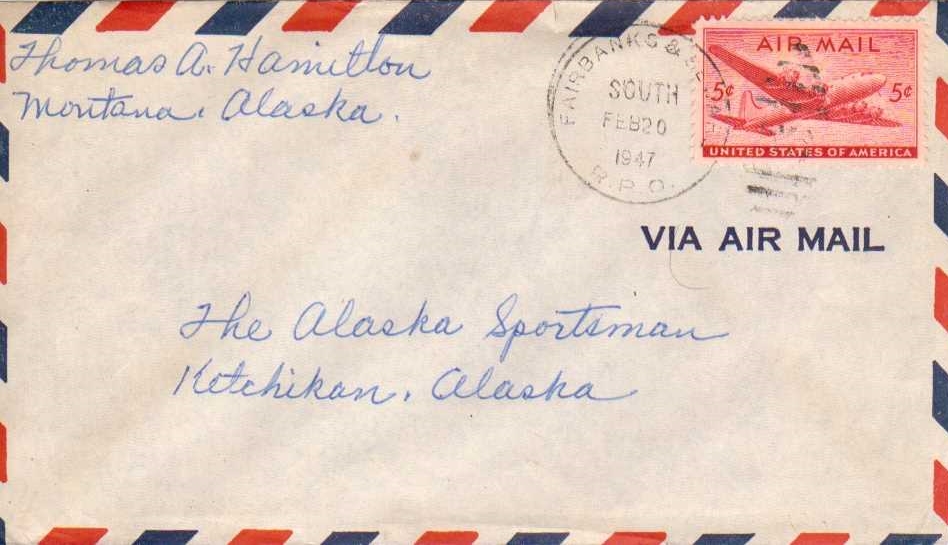 Thomas A. Hamilton
Montana, Alaska.
FAIRBANKS &
SOUTH
FEB 20
1947
R.P.O.
AIR MAIL
5¢ 5¢
UNITED STATES OF AMERICA
VIA AIR MAIL
The Alaska Sportsman
Ketchikan, Alaska